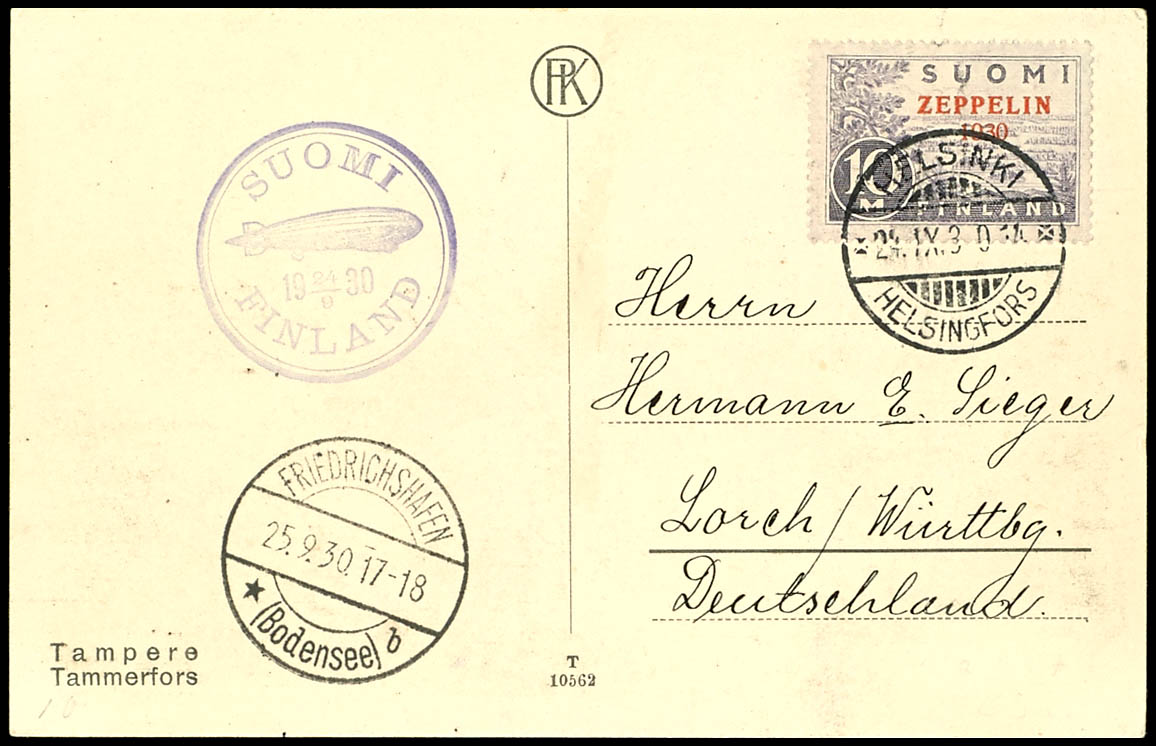 PK
SUOMI
ZEPPELIN
1930
10
M
FINLAND
HELSINKI
24.IX.30.14
HELSINGFORS
SUOMI
19 24/9 30
FINLAND
Herrn
Hermann E. Sieger
Lorch/Württbg.
Deutschland.
FRIEDRICHSHAFEN
25.9.30.17-18
(Bodensee) b
Tampere
Tammerfors
T
10562